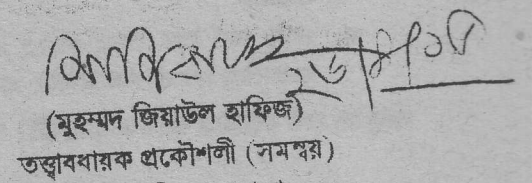 (মুহম্মদ জিয়াউল হাফিজ)
তত্ত্বাবধায়ক প্রকৌশলী (সমন্বয়)